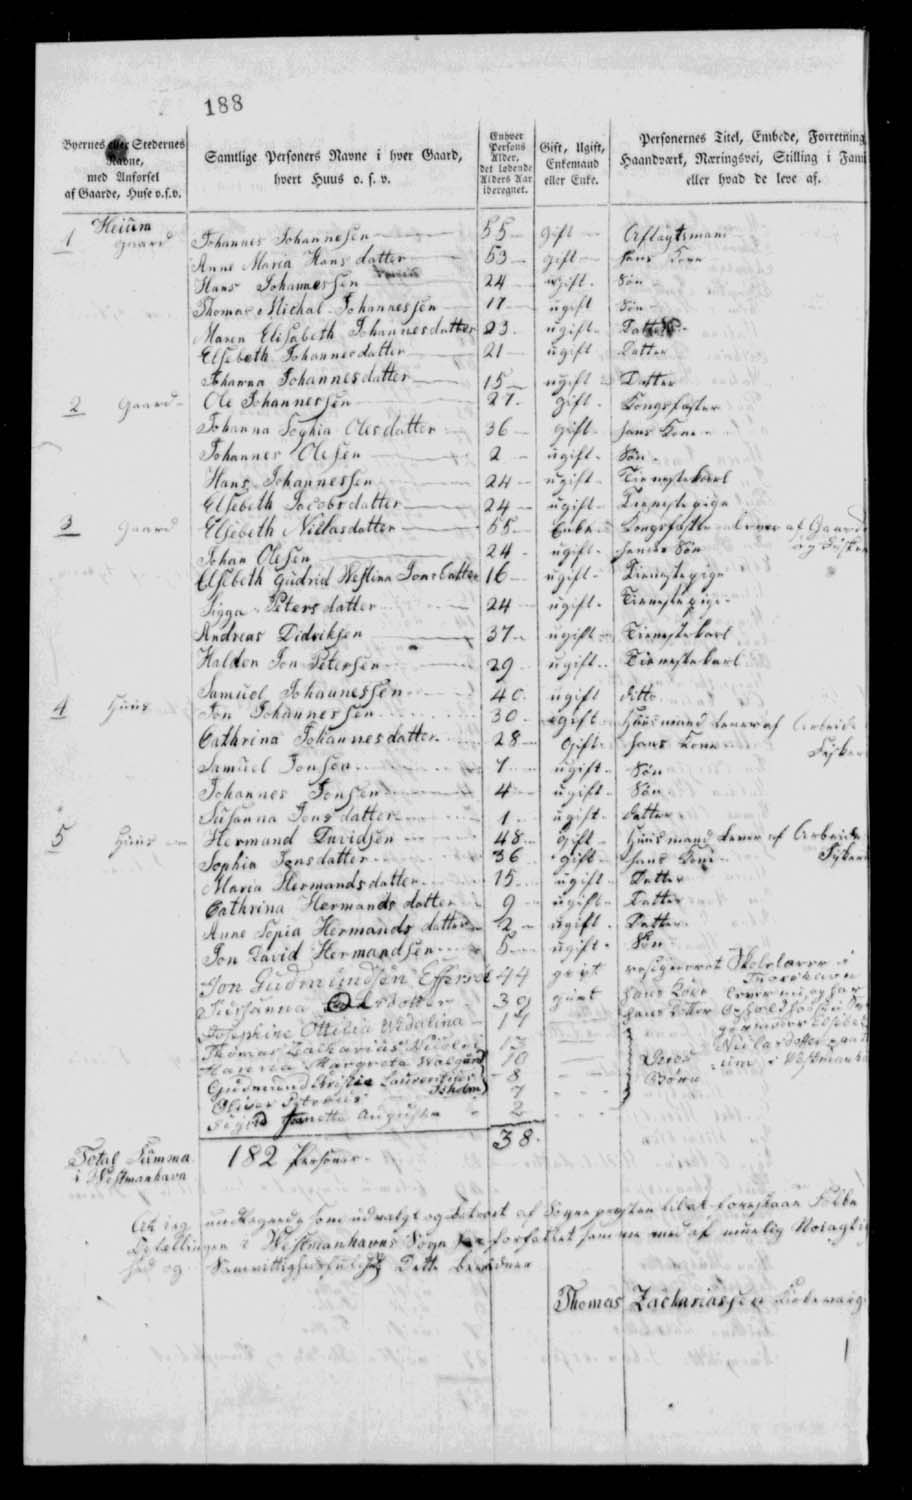 188
Byernes eller Stedernes Navne, med Anførsel af Gaarde, Huse o.s.v.
Samtlige Personers Navne i hver Gaard, hvert Huus o. s. v.
Enhver Persons Alder, det løbende Alders Aar iberegnet.
Gift, Ugift, Enkemand eller Enke.
Personernes Titel, Embede, Forretning Haandværk, Næringsvei, Stilling i Fami eller hvad de leve af.
Heium
1 Gaard Johannes Johannesen 55 gift Aftagtsmand
Anne Maria Hans datter 53 gift hans Kone
Hans Johannessen 24 ugift Søn
Thomas Michal Johannessen 17 ugift Søn
Maren Elisabeth Johannesdatter 23 ugift Datter
Elsebeth Johannesdatter 21 ugift Datter
Johanna Johannesdatter 15 ugift Datter
2 Gaard Ole Johannessen 27 gift Kongsfæster
Johanna Sophia Olesdatter 36 gift hans Kone
Johannes Olesen 2 ugift Søn
Hans Johannessen 24 ugift Tienestekarl
Elsebeth Jacobsdatter 24 ugift Tienestepige
3 Gaard Elsebeth Niclasdatter 55 Enke Kongsfæster lever af Gaarde
og Fisker
Johan Olesen 24 ugift hendes Søn
Elsebeth Gudrid Westina Jonsdatter 16 ugift Tienestepige
Sigga Petersdatter 24 ugift Tienestepige
Andreas Didriksen 37 ugift Tienestekarl
Halden Jon Petersen 29 ugift Tienestekarl
Samuel Johannessen 40 ugift ditto
4 Huus Jon Johannessen 30 gift Huusmand lever af Arbeide
Fisker
Cathrina Johannesdatter 28 gift hans Kone
Samuel Jonsen 7 ugift Søn
Johannes Jonsen 4 ugift Søn
Susanna Jonsdatter 1 ugift datter
5 Huus Hermand Davidsen 48 gift Huusmand lever af Arbeide
Fisker
Sophia Jonsdatter 36 gift hans Kone
Maria Hermandsdatter 15 ugift Datter
Cathrina Hermands datter 9 ugift Datter
Anne Sopia Hermands datter 2 ugift Datter
Jon David Hermandsen 5 ugift Søn
Jon Gudmundsen Effersøe 44 gift resigneret Skolelærer i
Thorshavn
39 gift hans Kone
Josephine Ottilia Wedalina 17
Thomas Zacharius 13
Hanna Margreta 10
Gudmund Kristie Laurentius 8
Oliver Petrous 7
Sigrid Janette Augusta 2
Deres Børn
38
Total Summa i Westmanhavn 182 Personer
At jeg undtegnede som udvalgt og betroet af Sogne presten til at forestaae Folke
Tællingen i Westmanhavns Sogn har forfattet samme med al muelig Nøiagtig
hed og Samvittighedsfuldhed Dette bevidner
Thomas Zachariassen Kirkeværge